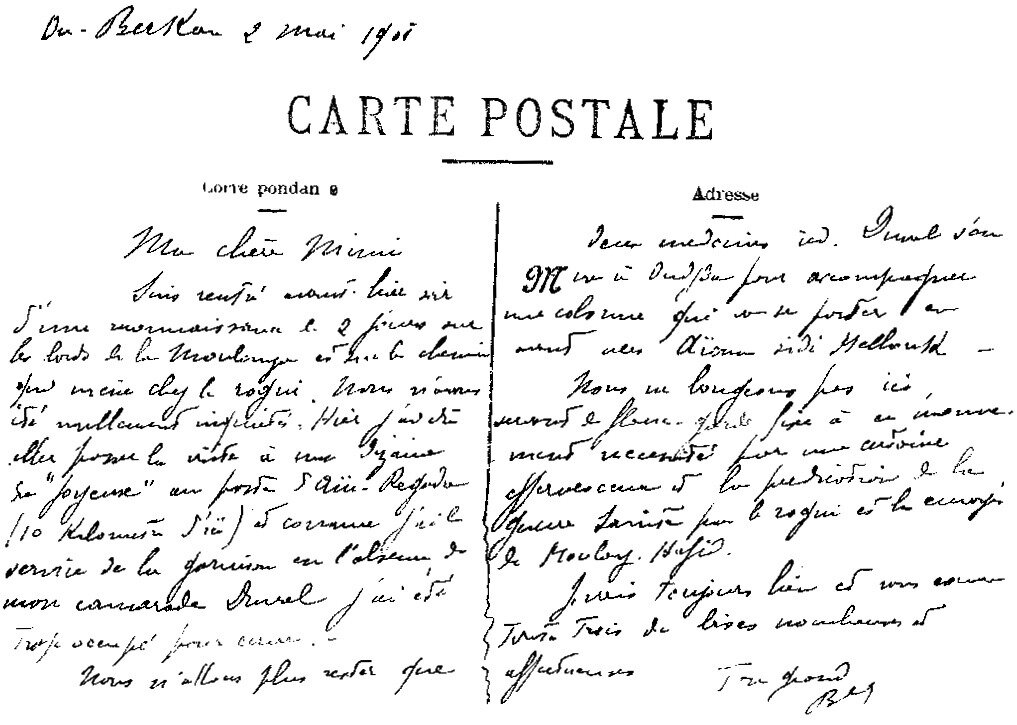 Berkan 2 mai
CARTE POSTALE
Corre pondan e
Ma chère Mimi
Suis rentré avant-hier soir
d'une reconnaissance de 2 jours sur
les bords de la Moulouya et sur le chemin
qui mène chez le rogui. Nous n'avons
été nullement inquiétés. Hier j'ai dû
aller passer la visite à une dizaine
de "joyeux" au poste d'Aïn-Regada
(10 Kilomètres d'ici) et comme j'ai le
service de la garnison en l'absence de
mon camarade Duval j'ai été
trop occupé pour écrire. -
Nous n'allons plus rester que
Adresse
deux médecins ici. Duval s'en
M
va à Oudjda pour accompagner
une colonne qui va se porter en
avant vers Aïoun sidi Mellouk -
Nous ne bougeons pas ici
garde fixe à ce
ment nécessité par une certaine
effervescence et la prédication de la
guerre sainte par le rogui et les envoyés
de Moulay-Hafid.
Je vais toujours bien et vous envoie
toutes trois de bises nombreuses et
affectueuses
Ton grand